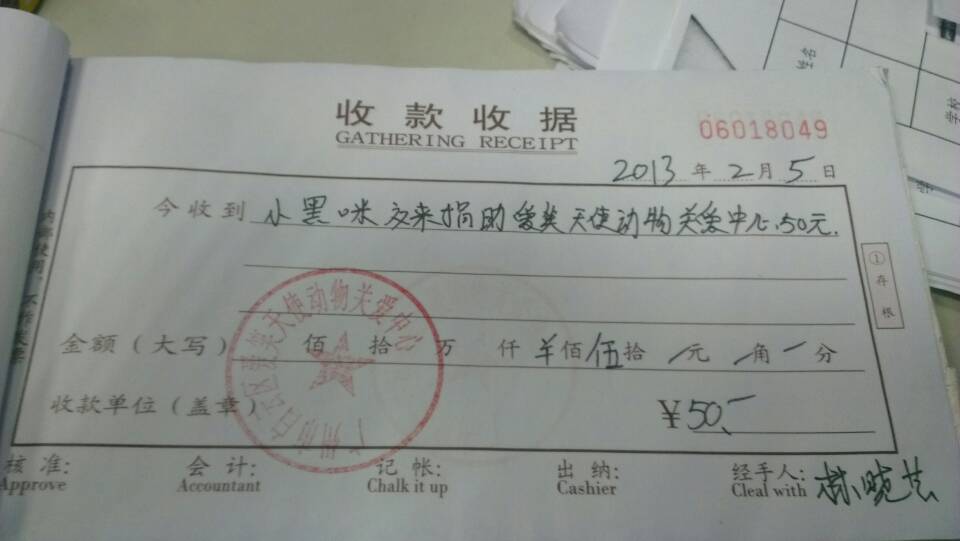 收款收据
GATHERING RECEIPT
06018049
2013年2月5日
今收到 小黑咪 交来捐助爱美天使动物关爱中心50元.
金额(大写) 佰 拾 万 仟 佰 伍 拾 元 角 分
收款单位(盖章) ¥50
天使动物关爱中心
①存根
核准: 会计: 记帐: 出纳: 经手人:
Approve Accountant Chalk it up Cashier Cleal with
林晓
姓名
学校